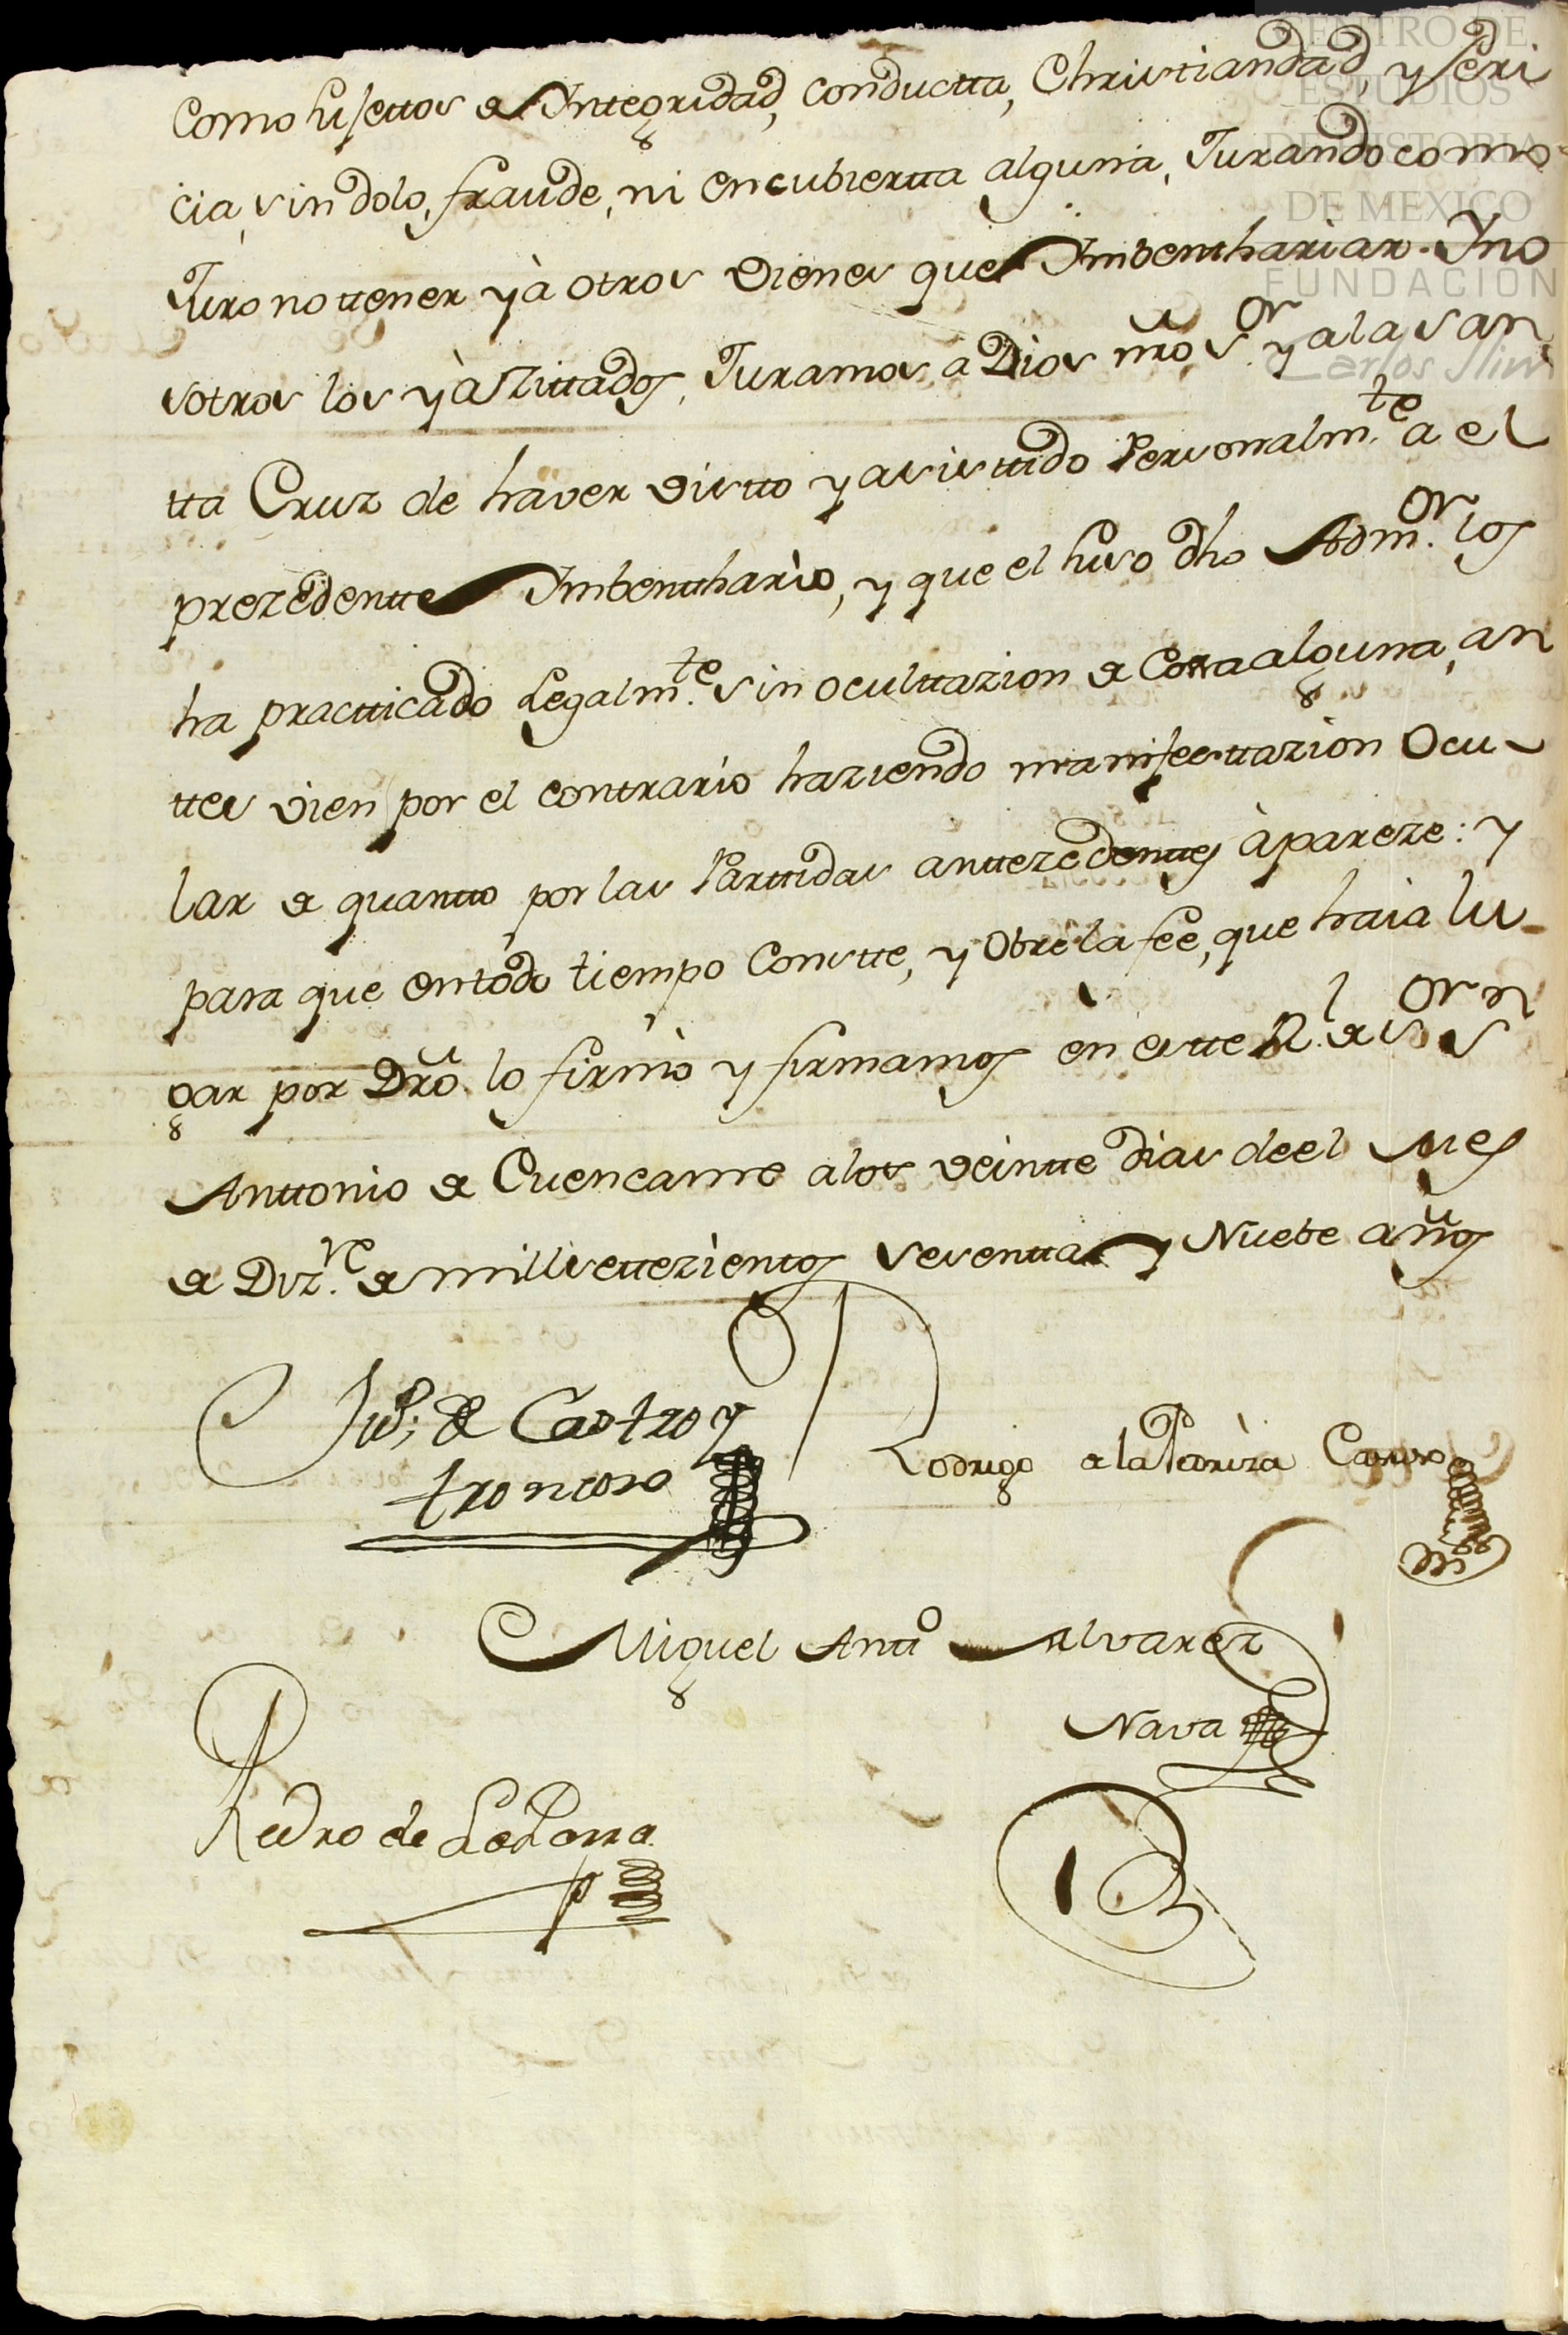 Como Susettos de Yntegridad, Conductta, Christiandad, y Peri
cia, sin dolo, fraude, ni encubiertta alguna, Jurando como
Juro no ttener yà otros vienes que Ymbenthariar. Y no
sotros los yà Zittados, Juramos a Dios nrõ Sor. y a la San
tta Cruz de haver visto y asisttido Personalmte. a el
prezedentte Ymbentthario, y que el huso dho Admor. los
ha practticado Legalmte. sin ocultazion de Cossa alguna, an
ttes vien por el contrario haziendo manifesttazion Ocu-
lar de quantto por las Parttidas anttezedenttes àpareze: y
para que en todo tiempo Constte, y Obre la feè, que haia lu-
gar por Drõ. lo firmò y firmamos en estte Rl. de Sor Sn
Anttonio de Cuencame a los veintte dias de el Mes
de Dizre. de mill settezientos sesentta y Nuebe años
Jph. de Castro y
troncoso
Rodrigo de la
Miguel Antto Alvarez
Nava
Pedro de